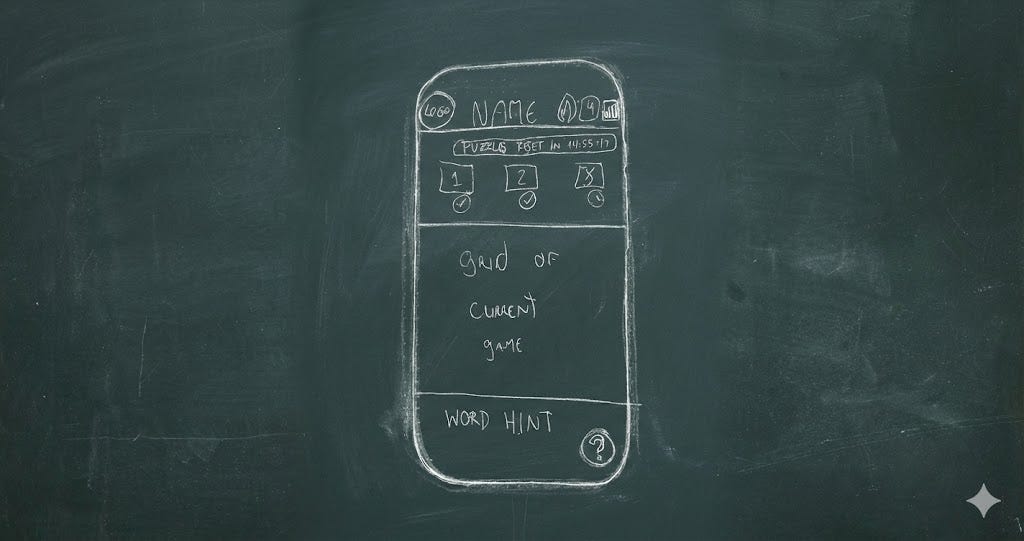 LOGO NAME 4
PUZZLES RESET IN 14:55:17
1 2
GRID OF
CURRENT
GAME
WORD HINT
?